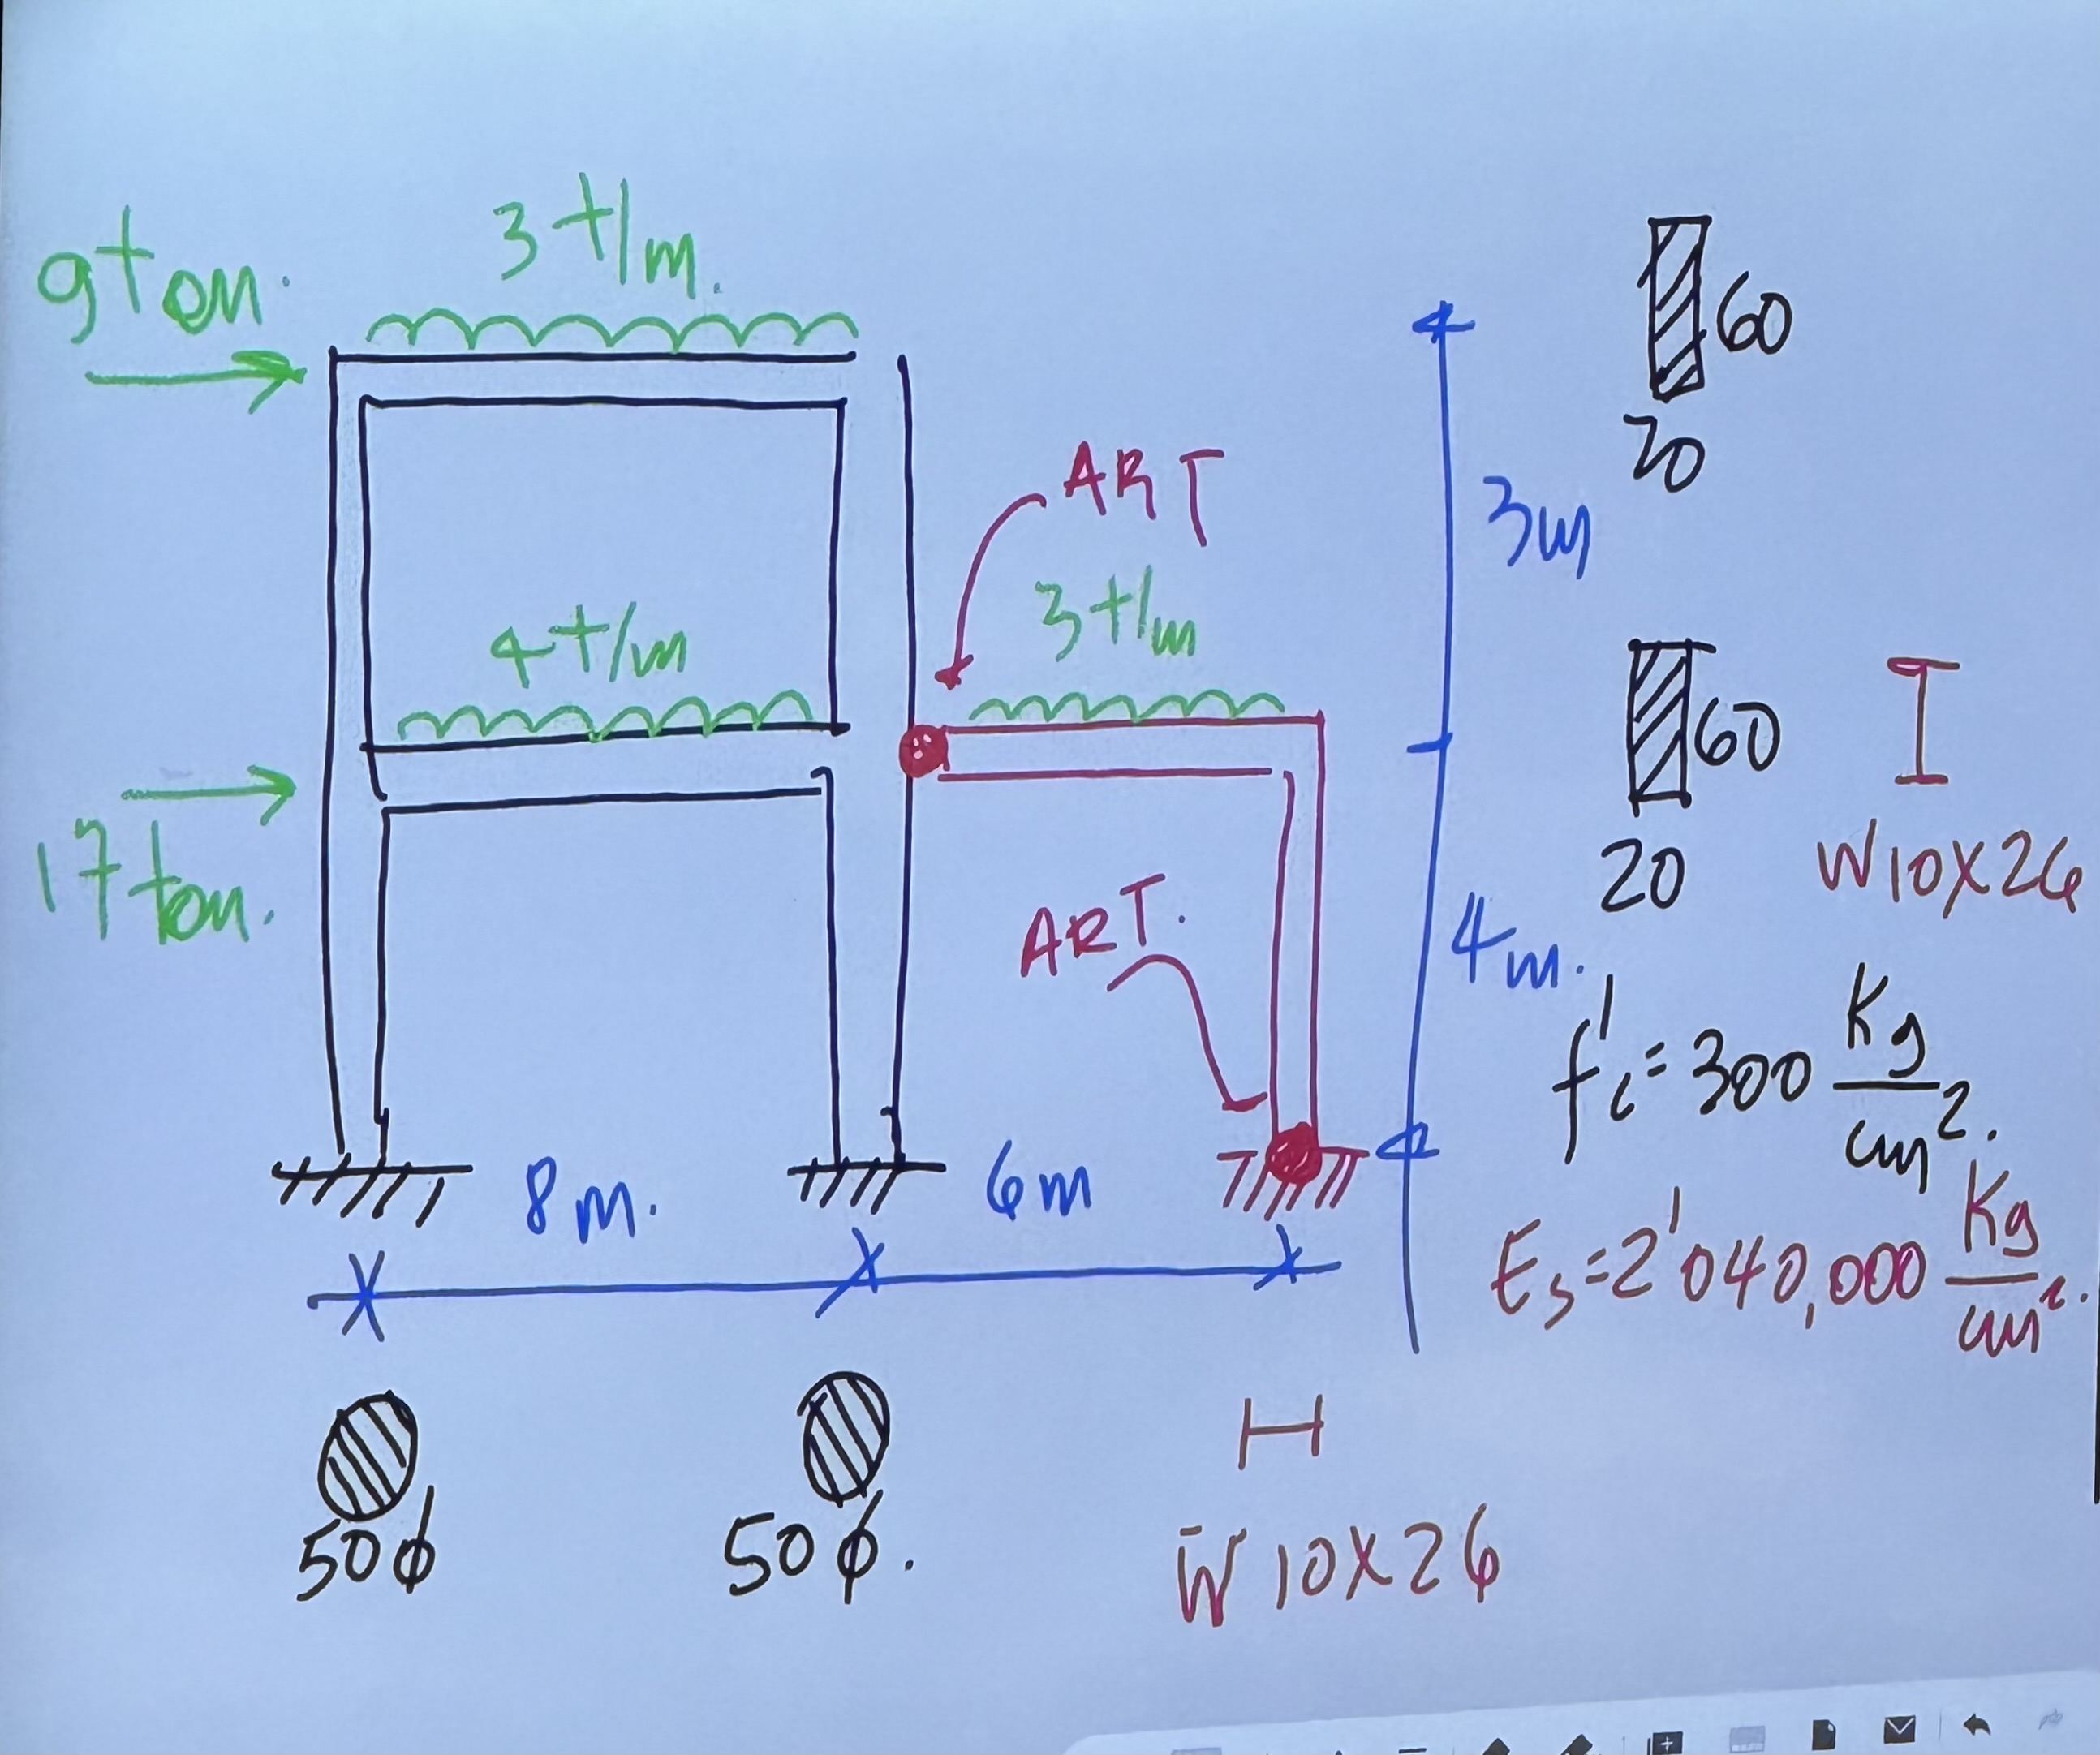 9 ton.
3 t/m.
60
20
ART
3m
4 t/m
3 t/m
60
20
W10X26
17 ton.
ART.
4m.
f'c = 300 Kg/cm².
8 m.
6m
Es = 2'040,000 Kg/cm².
50 ϕ
50 ϕ.
W 10X26